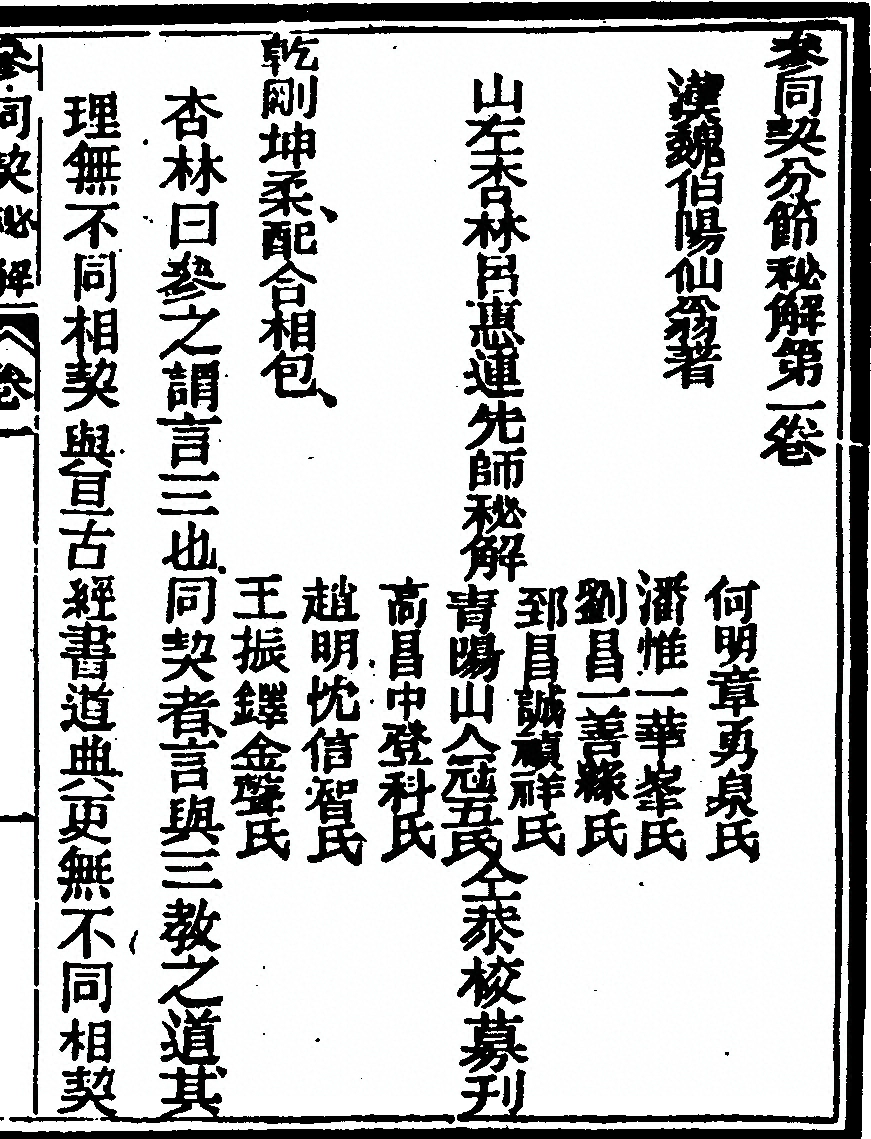 参同契分節秘解第一卷
漢魏伯陽仙翁著
山左杏林呂惠蓮先師秘解
何明章勇泉氏
潘惟一華峯氏
劉昌一善緣氏
郅昌誠禎祥氏
青陽山人冠五氏
高昌中登科氏
趙明忱信智氏
王振鐸金聲氏
仝叅校募刊
乾剛坤柔、配合相包、
杏林曰參之謂言三也同契者言與三教之道其
理無不同相契與亘古經書道典更無不同相契
參同契秘解
卷一